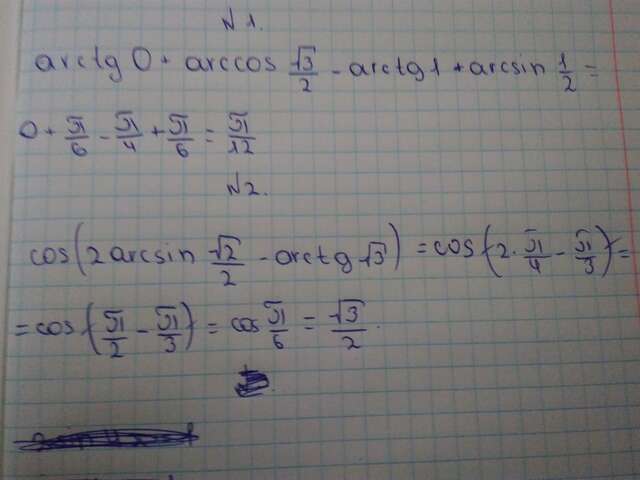 №1.
arctg 0 + arccos √3/2 - arctg 1 + arcsin 1/2 =
0 + π/6 - π/4 + π/6 = π/12
№2.
cos(2 arcsin √2/2 - arctg √3) = cos(2·π/4 - π/3) =
= cos(π/2 - π/3) = cos π/6 = √3/2.